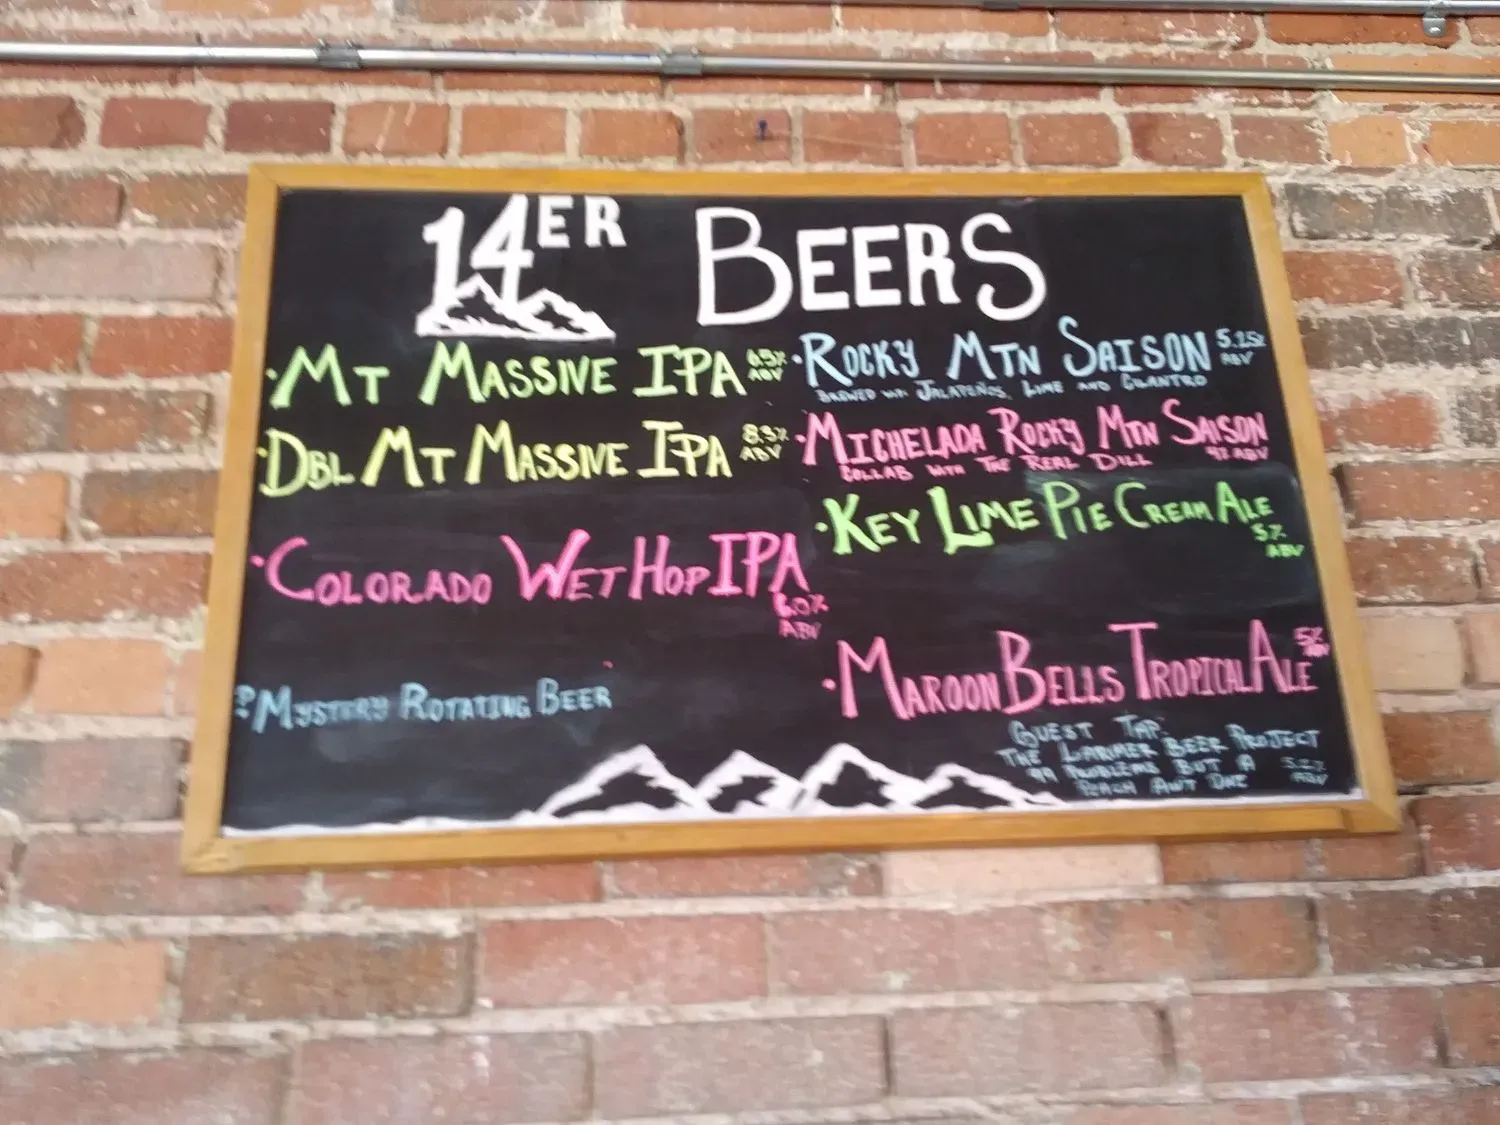 14ER BEERS
· MT MASSIVE IPA 6.5% ABV
· DBL MT MASSIVE IPA 8.5% ABV
· COLORADO WET HOP IPA
6.0%
ABV
? MYSTERY ROTATING BEER
· ROCKY MTN SAISON 5.25% ABV
BREWED W/ JALAPEÑOS, LIME AND CILANTRO
· MICHELADA ROCKY MTN SAISON
COLLAB WITH THE REAL DILL ABV
· KEY LIME PIE CREAM ALE
5%
ABV
· MAROON BELLS TROPICAL ALE 5% ABV
GUEST TAP:
THE LARIMER BEER PROJECT
99 PROBLEMS BUT A
PEACH AIN'T ONE ABV